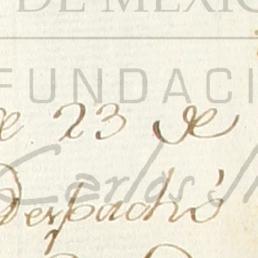 DE MÉXICO
FUNDACI
e 23 de
Carlos
Despachó